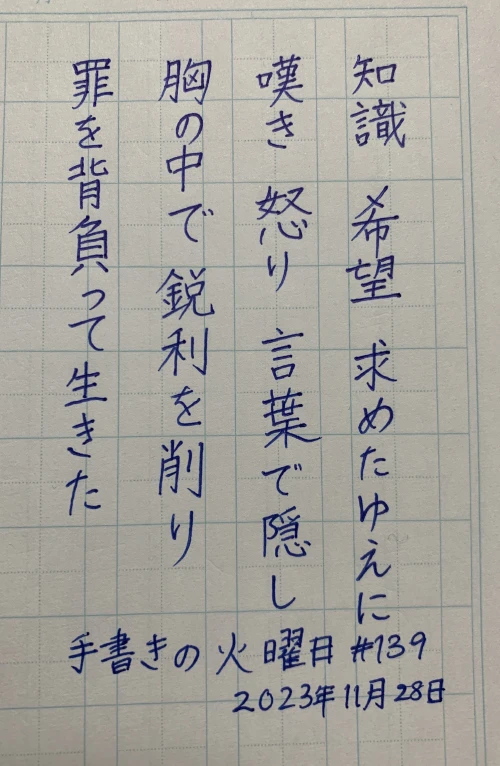 知識 希望 求めたゆえに
嘆き 怒り 言葉で隠し
胸の中で 鋭利を削り
罪を背負って生きた
手書きの火曜日 #139
2023年11月28日